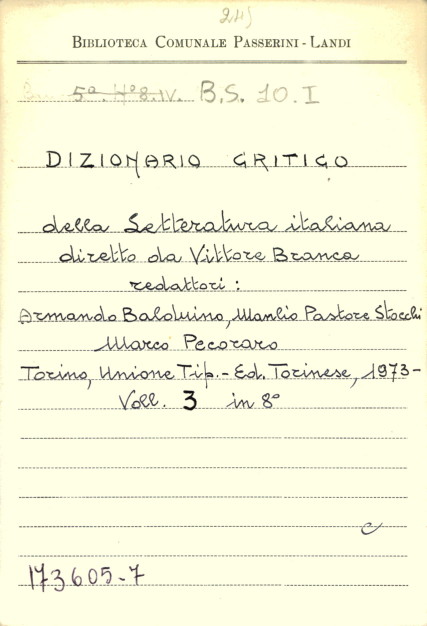 245
BIBLIOTECA COMUNALE PASSERINI - LANDI
5ª. Hº 8. IV. B.S. 10. I
DIZIONARIO CRITICO
della Letteratura italiana
diretto da Vittore Branca
redattori :
Armando Balduino, Manlio Pastore Stocchi
Marco Pecoraro
Torino, Unione Tip.- Ed. Torinese, 1973-
Voll. 3 in 8º
c
173605-7